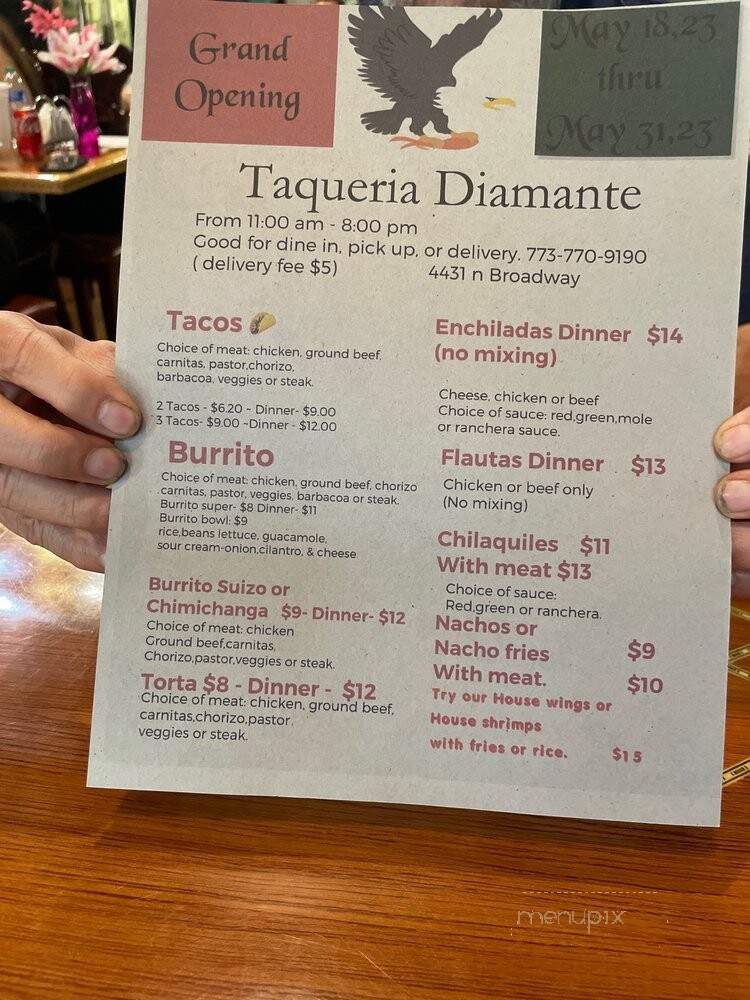 Grand
Opening
May 18,23
thru
May 31,23
Taqueria Diamante
From 11:00 am - 8:00 pm
Good for dine in, pick up, or delivery. 773-770-9190
( delivery fee $5) 4431 n Broadway
Tacos
Choice of meat: chicken, ground beef,
carnitas, pastor,chorizo,
barbacoa, veggies or steak.
2 Tacos - $6.20 ~ Dinner- $9.00
3 Tacos- $9.00 ~Dinner - $12.00
Burrito
Choice of meat: chicken, ground beef, chorizo
carnitas, pastor, veggies, barbacoa or steak.
Burrito super- $8 Dinner- $11
Burrito bowl: $9
rice,beans lettuce, guacamole,
sour cream-onion,cilantro, & cheese
Burrito Suizo or
Chimichanga $9- Dinner- $12
Choice of meat: chicken
Ground beef,carnitas,
Chorizo,pastor,veggies or steak.
Torta $8 - Dinner - $12
Choice of meat: chicken, ground beef,
carnitas,chorizo,pastor
veggies or steak.
Enchiladas Dinner $14
(no mixing)
Cheese, chicken or beef
Choice of sauce: red,green,mole
or ranchera sauce.
Flautas Dinner $13
Chicken or beef only
(No mixing)
Chilaquiles $11
With meat $13
Choice of sauce:
Red,green or ranchera.
Nachos or
Nacho fries $9
With meat. $10
Try our House wings or
House shrimps
with fries or rice. $15
menupix